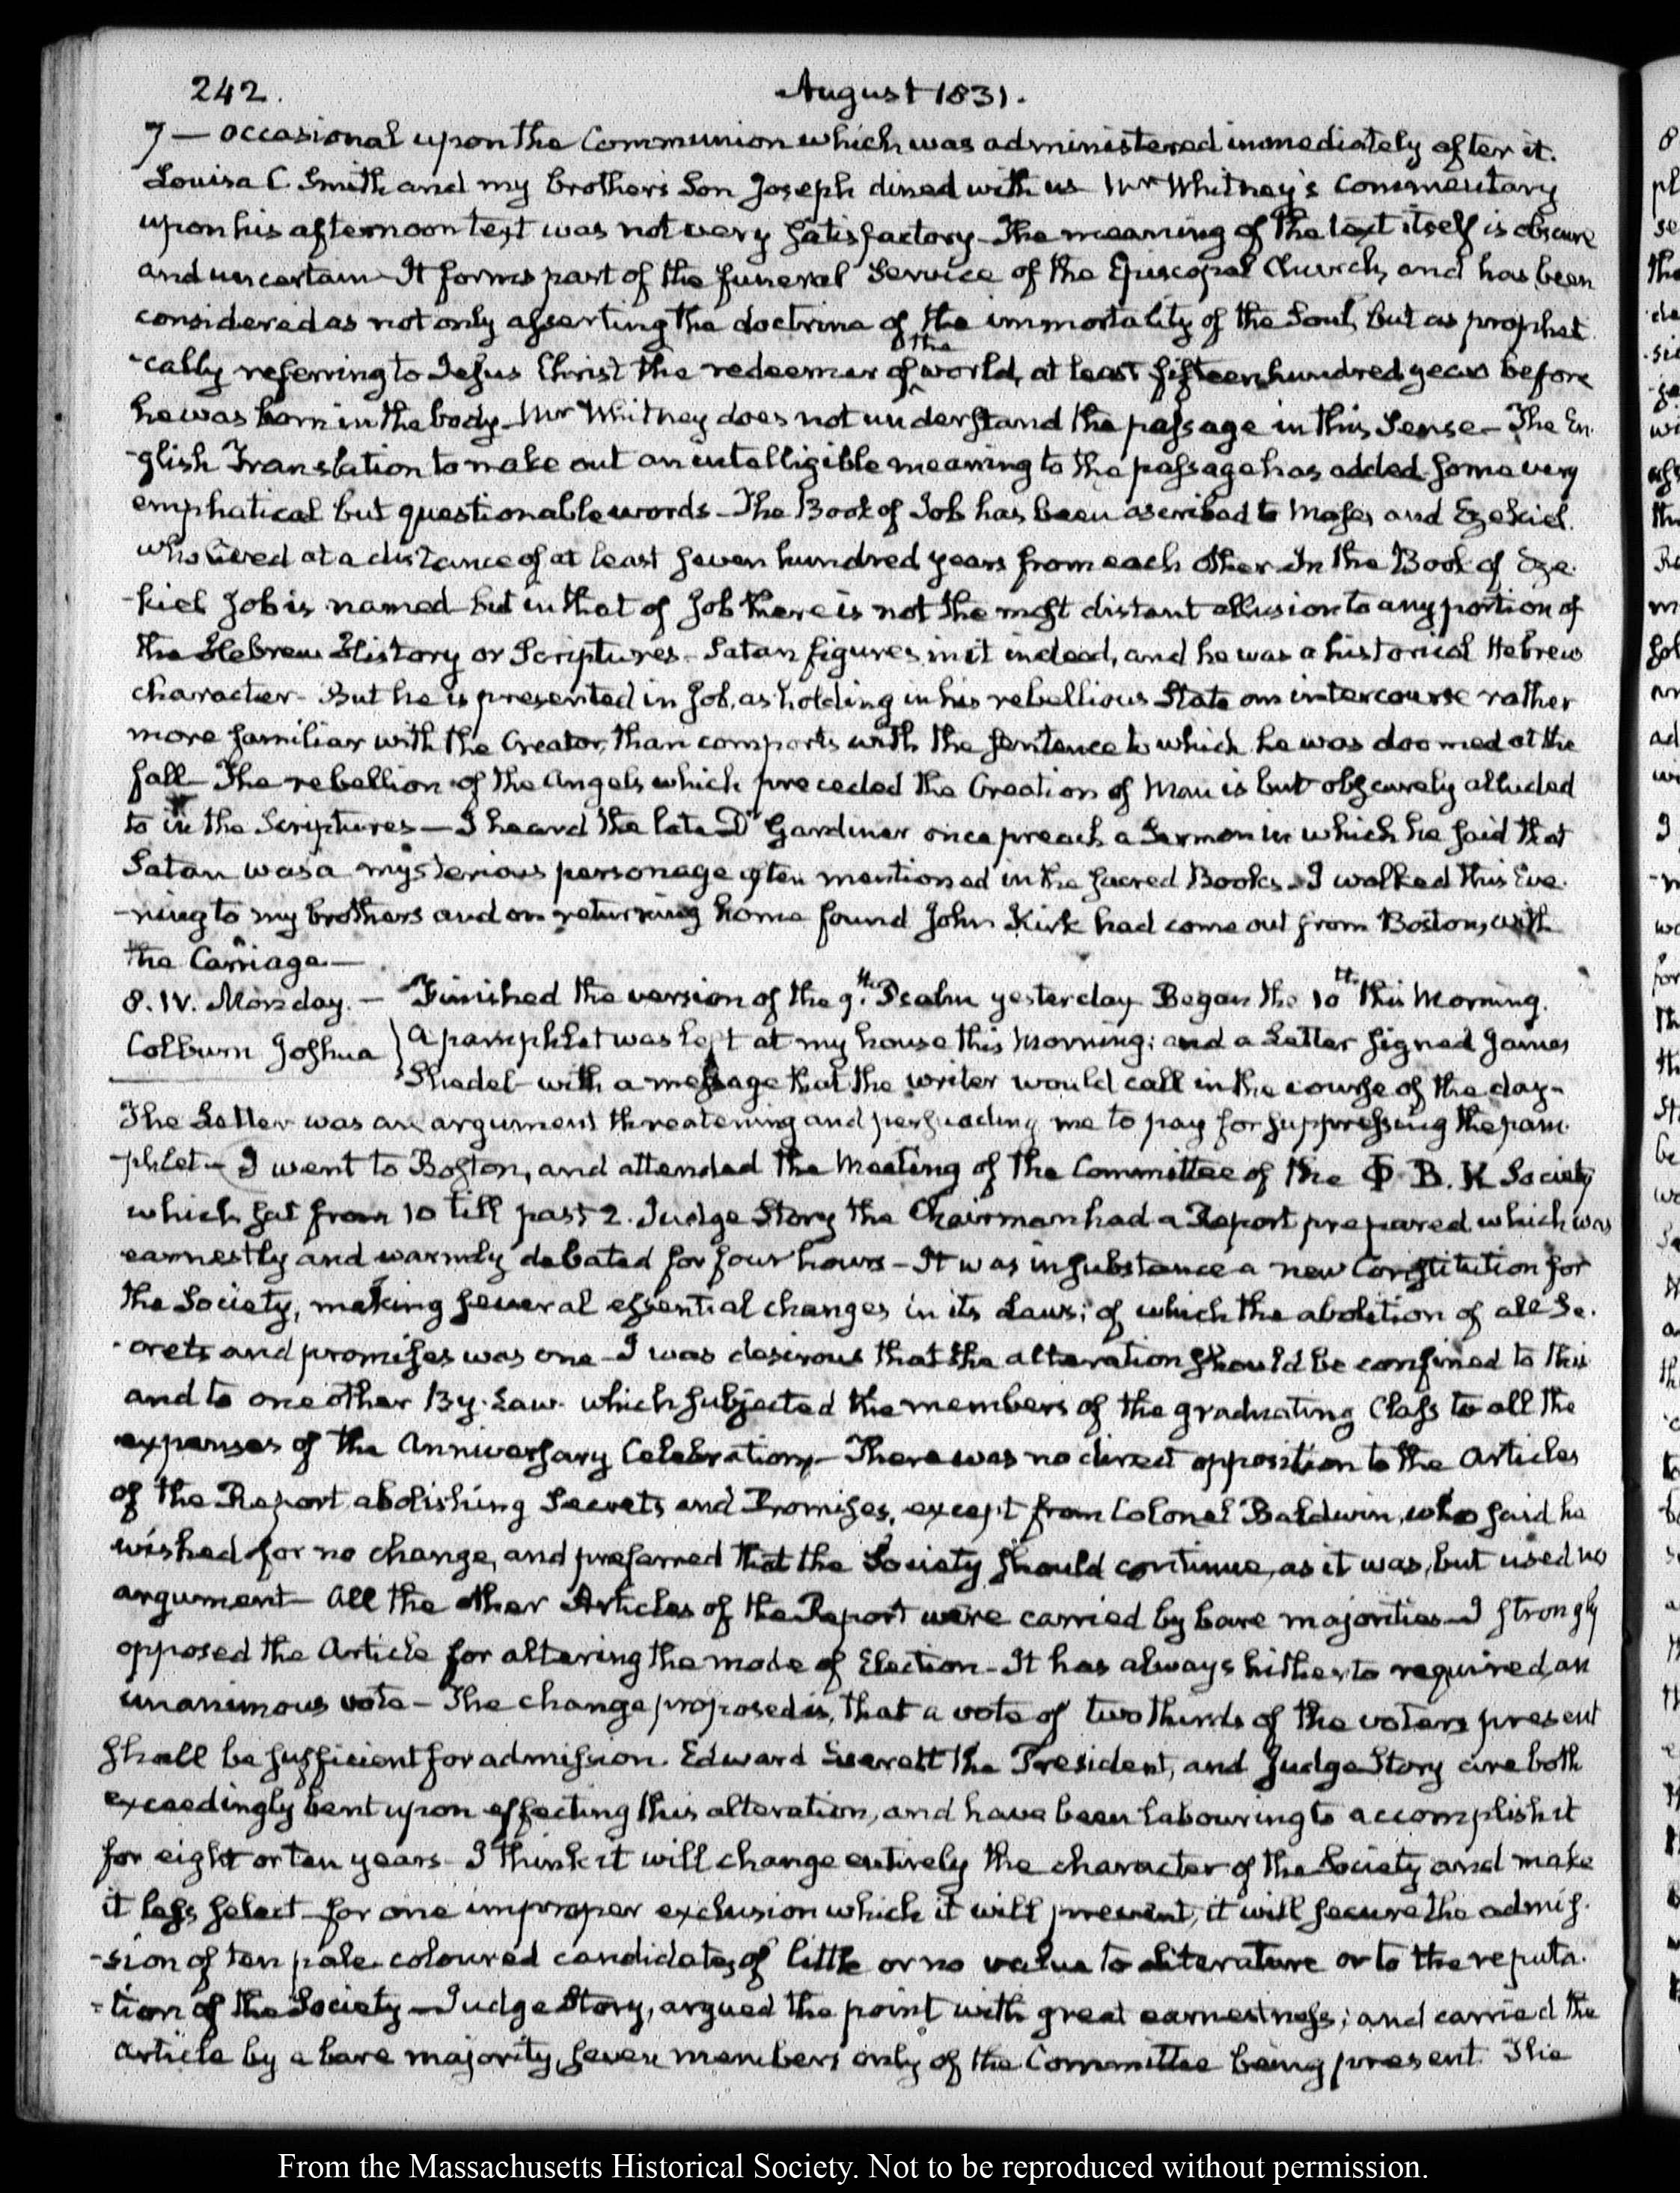 242.
August 1831.
7 — occasional upon the Communion which was administered immediately after it.
Louisa C. Smith and my brother's Son Joseph dined with us Mr Whitney's commentary
upon his afternoon text was not very satisfactory – The meaning of the text itself is obscure
and uncertain – It forms part of the funeral Service of the Episcopal Church, and has been
considered as not only asserting the doctrine of the immortality of the Soul, but as propheti
-cally referring to Jesus Christ the redeemer of the world, at least fifteen hundred years before
he was born in the body – Mr Whitney does not understand the passage in this Sense – The En-
-glish Translation to make out an intelligible meaning to the passage has added some very
emphatical but questionable words – The Book of Job has been ascribed to Moses and Ezekiel.
who lived at a distance of at least seven hundred years from each other – In the Book of Eze-
-kiel Job is named but in that of Job there is not the most distant allusion to any portion of
the Hebrew History or Scriptures – Satan figures in it indeed, and he was a historical Hebrew
character – But he is presented in Job, as holding in his rebellious State an intercourse rather
more familiar with the Creator, than comports with the sentence to which he was doomed at the
fall – The rebellion of the Angels which preceded the Creation of Man is but obscurely alluded
to in the Scriptures — I heard the late Dr Gardiner once preach a Sermon in which he said that
Satan was a mysterious personage often mentioned in the sacred Books – I walked this Eve-
-ning to my brothers and on returning home found John Kirk had come out from Boston, with
the Carriage —
8. IV. Monday. — Finished the version of the 9th. Psalm yesterday Began the 10th this Morning.
Colburn Joshua } A pamphlet was left at my house this Morning; and a Letter signed James
Shedel – with a message that the writer would call in the course of the day –
The Letter was an argument threatening and persuading me to pay for suppressing the pam-
-phlet – I went to Boston, and attended the Meeting of the Committee of the Φ. B. K Society
which sat from 10 till past 2. Judge Story the Chairman had a Report prepared which was
earnestly and warmly debated for four hours – It was in substance a new Constitution for
the Society, making several essential changes in its Laws; of which the abolition of all Se-
-crets and promises was one – I was desirous that the alteration should be confined to this
and to one other By-Law which subjected the members of the graduating Class to all the
expenses of the Anniversary Celebration – There was no direct opposition to the Articles
of the Report abolishing Secrets and Promises, except from Colonel Baldwin, who said he
wished for no change, and preferred that the Society should continue, as it was, but used no
argument – All the other Articles of the Report were carried by bare majorities – I strongly
opposed the Article for altering the mode of Election – It has always hitherto required an
unanimous vote – The change proposed is, that a vote of two thirds of the voters present
shall be sufficient for admission. Edward Everett the President, and Judge Story are both
exceedingly bent upon effecting this alteration, and have been labouring to accomplish it
for eight or ten years – I think it will change entirely the character of the Society and make
it less select – for one improper exclusion which it will prevent, it will secure the admis-
-sion of ten pale coloured candidates, of little or no value to Literature or to the reputa-
-tion of the Society – Judge Story, argued the point with great earnestness; and carried the
Article by a bare majority, seven members only of the Committee being present. The
From the Massachusetts Historical Society. Not to be reproduced without permission.